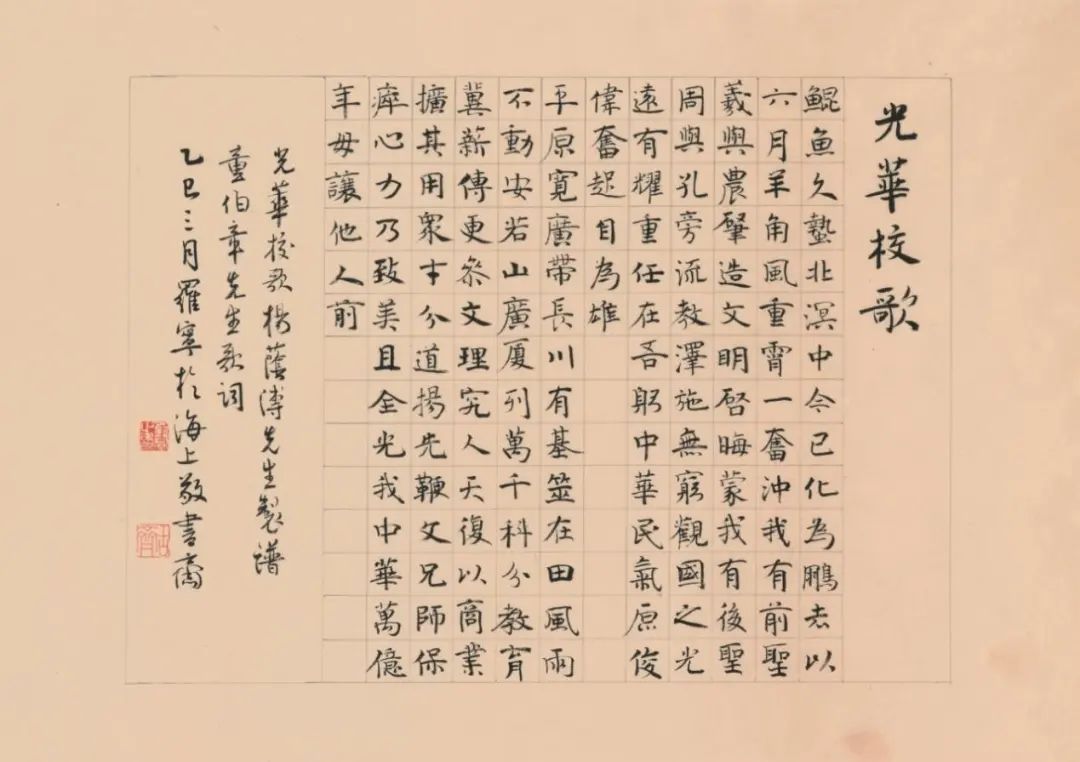 光華校歌
鯤魚久蟄北溟中今已化為鵬去以
六月羊角風重霄一奮沖我有前聖
羲與農肇造文明启晦蒙我有後聖
周與孔旁流教澤施無窮觀國之光
遠有耀重任在吾躬中華民氣原俊
偉奮起自為雄
平原寬廣帶長川有基在田風雨
不動安若山廣厦列萬千科分教育
冀薪傳更參文理究人天復以商業
擴其用衆才分道揚先鞭父兄師保
瘁心力乃致美且全光我中華萬億
年毋讓他人前
光華校歌楊蔭溥先生製譜
童伯章先生歌詞
乙巳三月羅寧於海上敬書齋